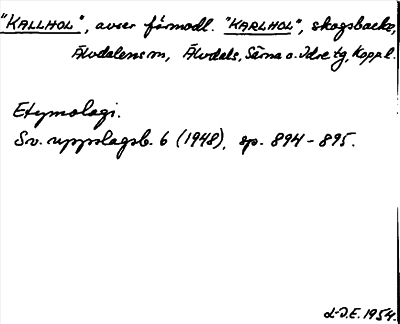 "KALLHOL", avser förmodl. "KARLHOL", skogsbacke,
Älvdalens sn, Älvdals, Särna o. Idre tg, Koppl.
Etymologi.
Sv. uppslagsb. 6 (1948), sp. 894-895.
L-J.E. 1954.